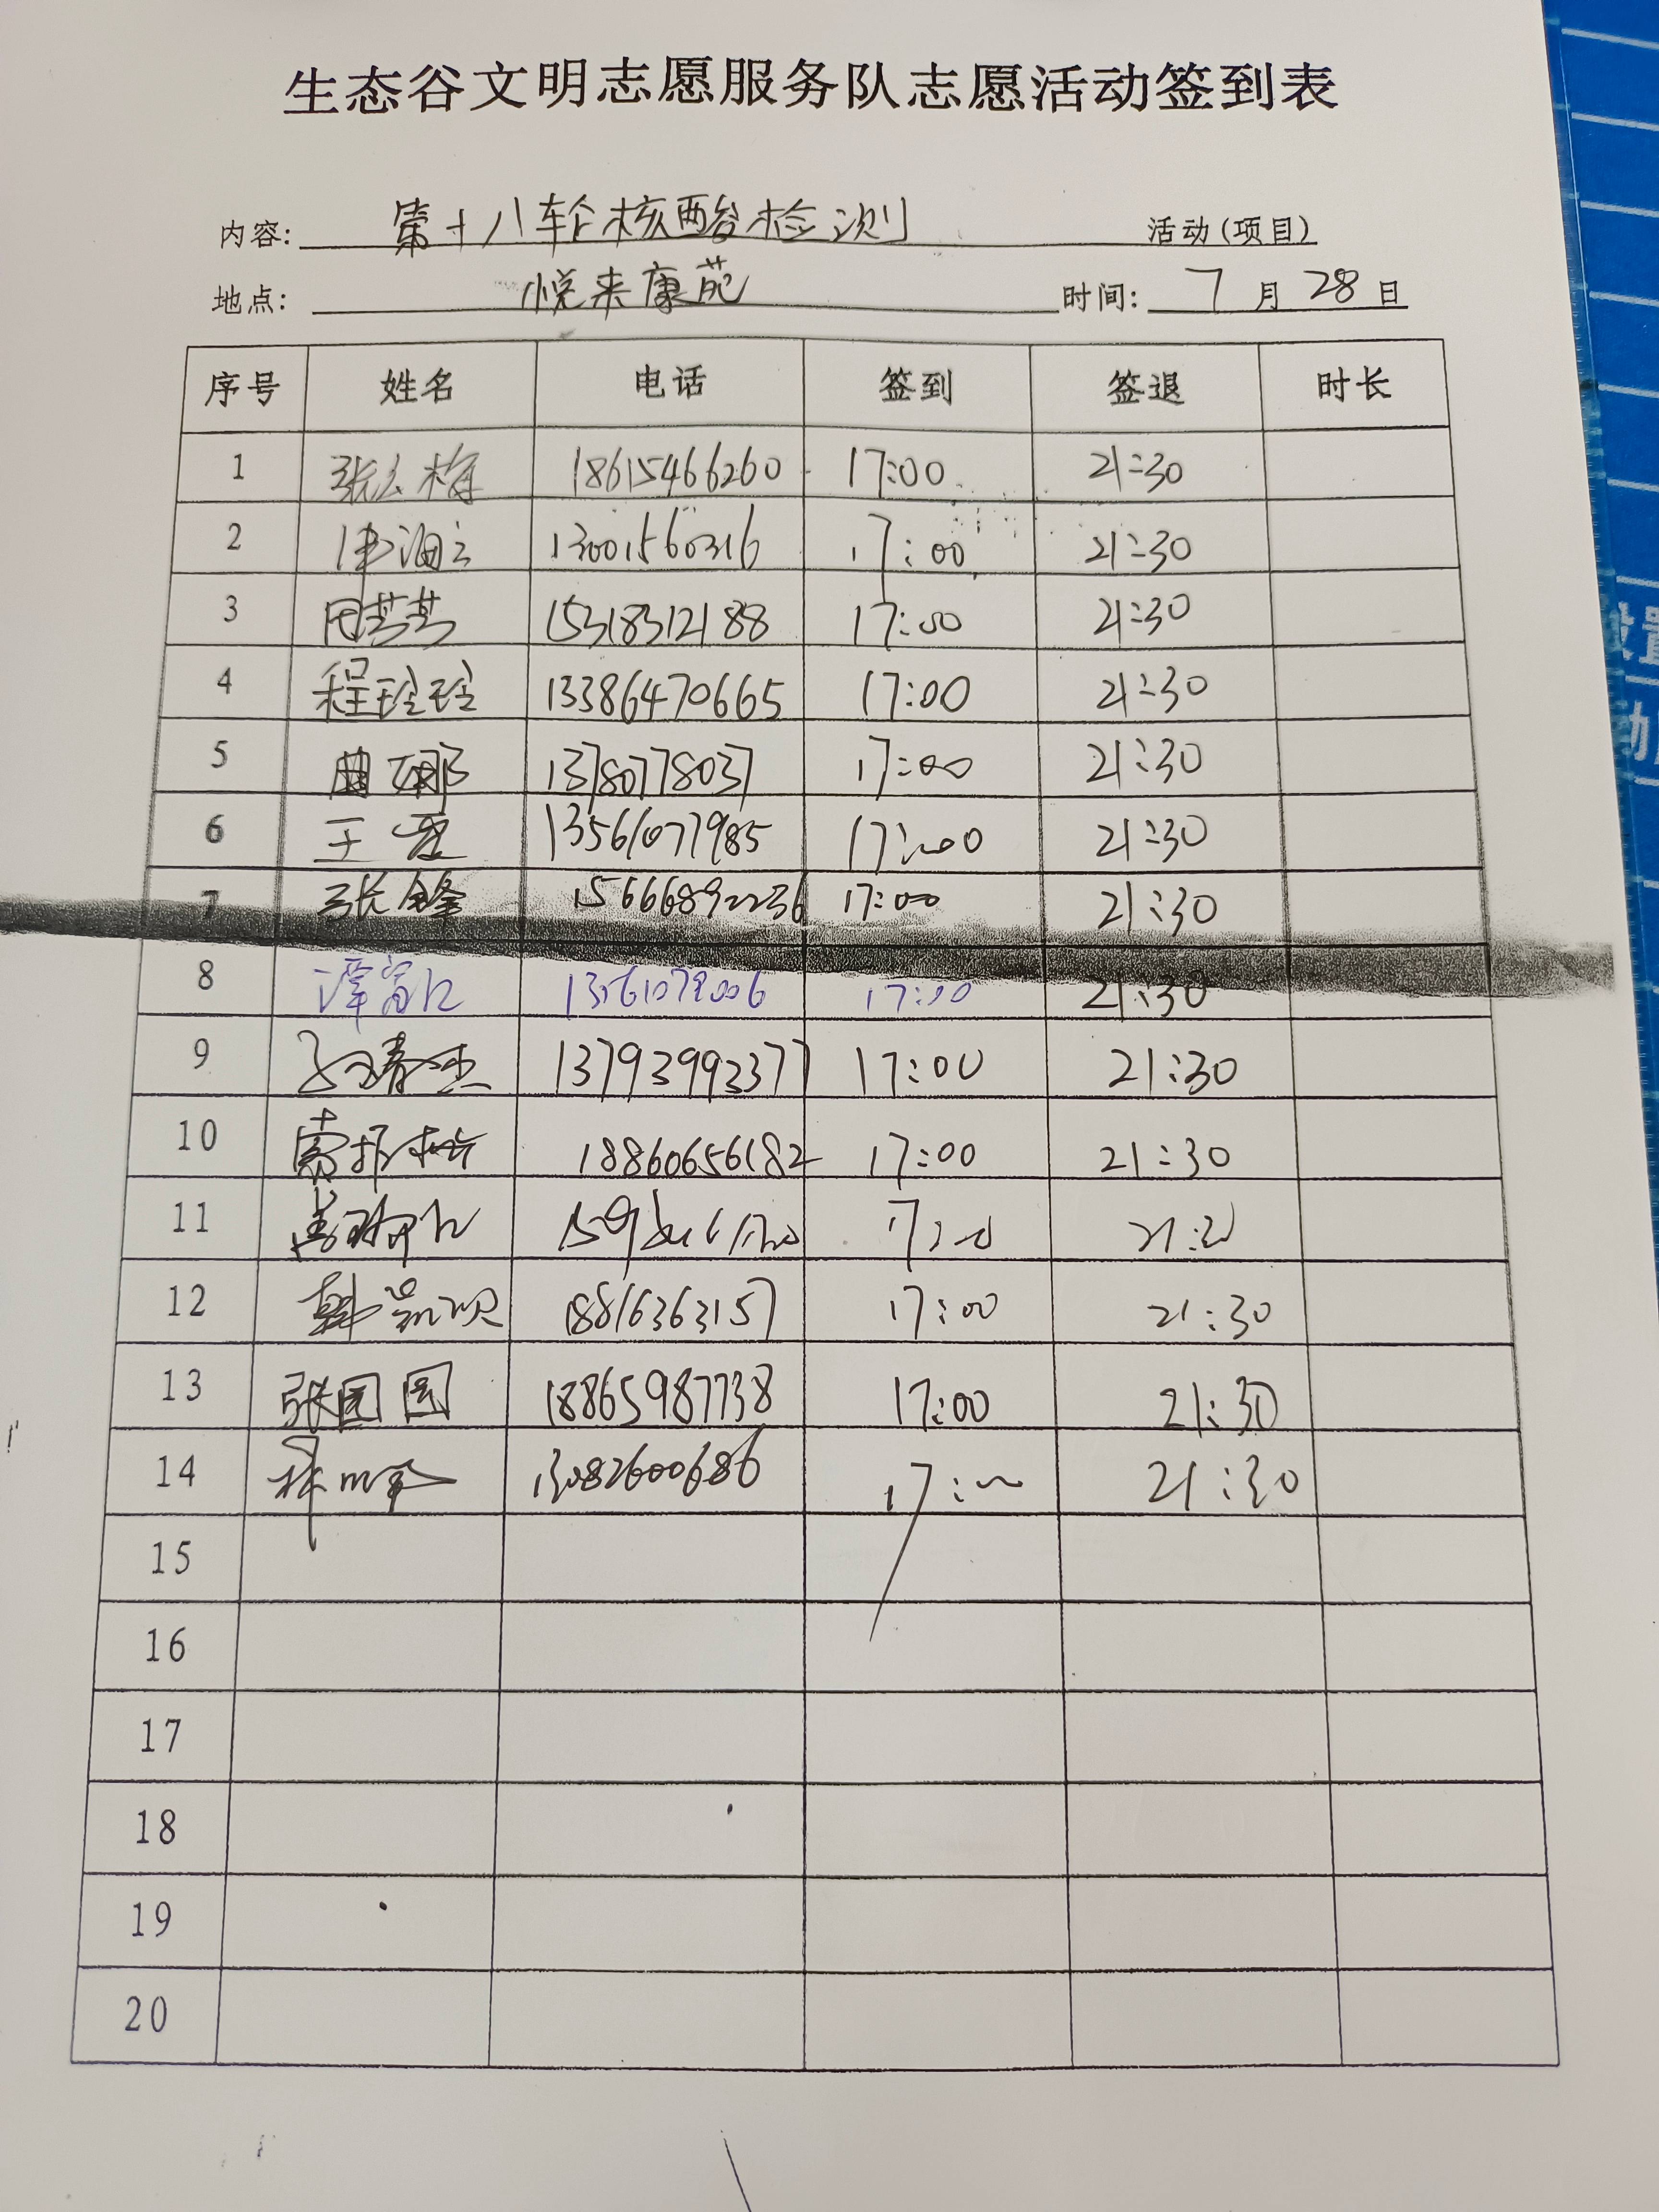 生态谷文明志愿服务队志愿活动签到表
内容: 第十八轮核酸检测 活动(项目)
地点: 悦来康苑 时间: 7月28日
序号 姓名 电话 签到 签退 时长
1 18615466260 17:00 21:30
2 13001560316 17:00 21:30
3 15318312188 17:00 21:30
4 程玲玲 13386470665 17:00 21:30
5 曲娜 13780778037 17:00 21:30
6 13561077985 17:00 21:30
7 张锋 15666892236 17:00 21:30
8 17:00 21:30
9 13793993377 17:00 21:30
10 18860656182 17:00 21:30
11
12 18816363157 17:00 21:30
13 张圆圆 18865987738 17:00 21:30
14 13082600686 17:00 21:30
15
16
17
18
19
20